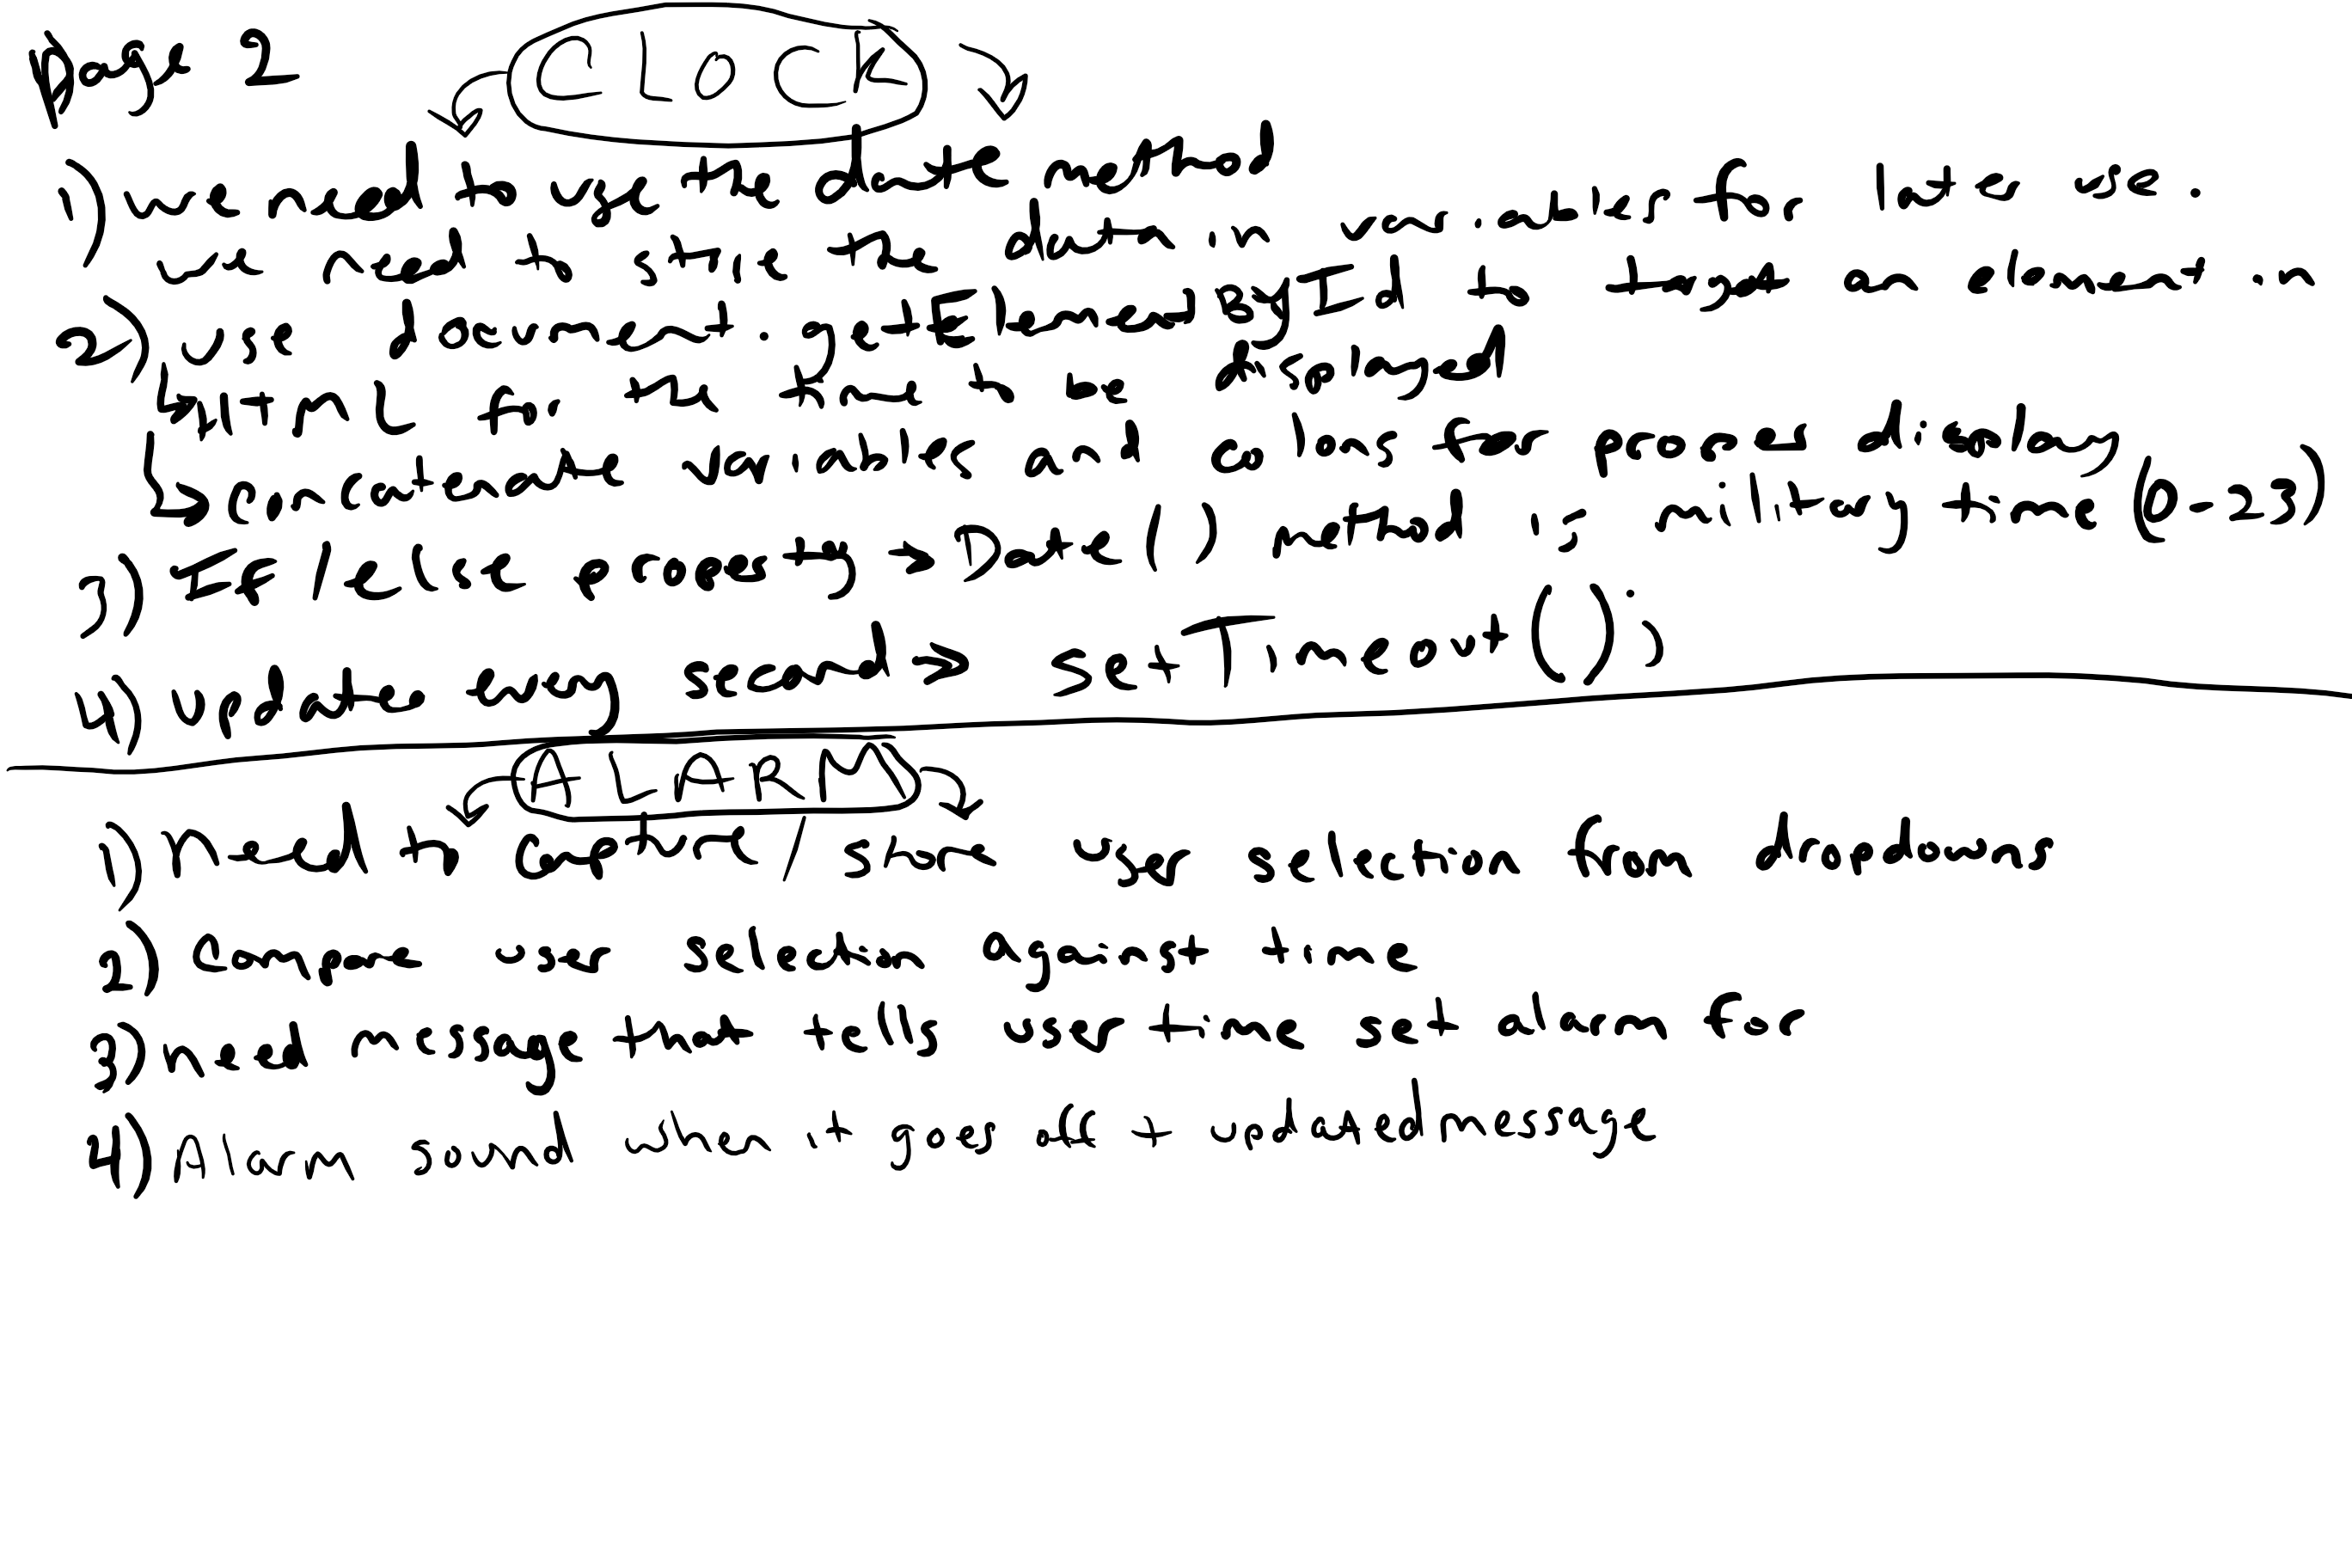 page 2
CLOCK
1) we need to use the date method
we need to store the data in variables for later use.
2) Use document.getElementById to target an element in
HTML for the time to be displayed
Concatenate variables and colons for proper display
3) If/else property → Date() method is military time (0-23)
4) update every second → setTimeout();
ALARM
1) Need to capture/store user selection from dropdowns
2) Compare user selection against time
3) Need message that tells user time set alarm for
4) Alarm sound when it goes off + updated message